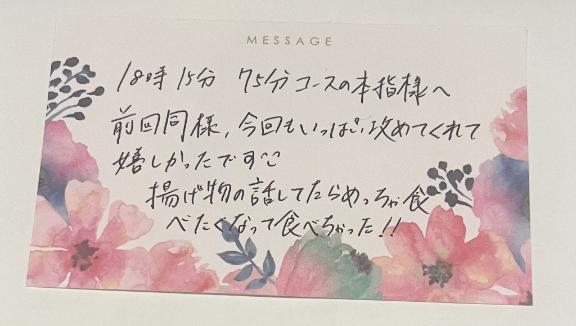 MESSAGE
18時15分 75分コースの本指様へ
前回同様、今回もいっぱい攻めてくれて
嬉しかったです
揚げ物の話してたらめっちゃ食
べたくなって食べちゃった!!